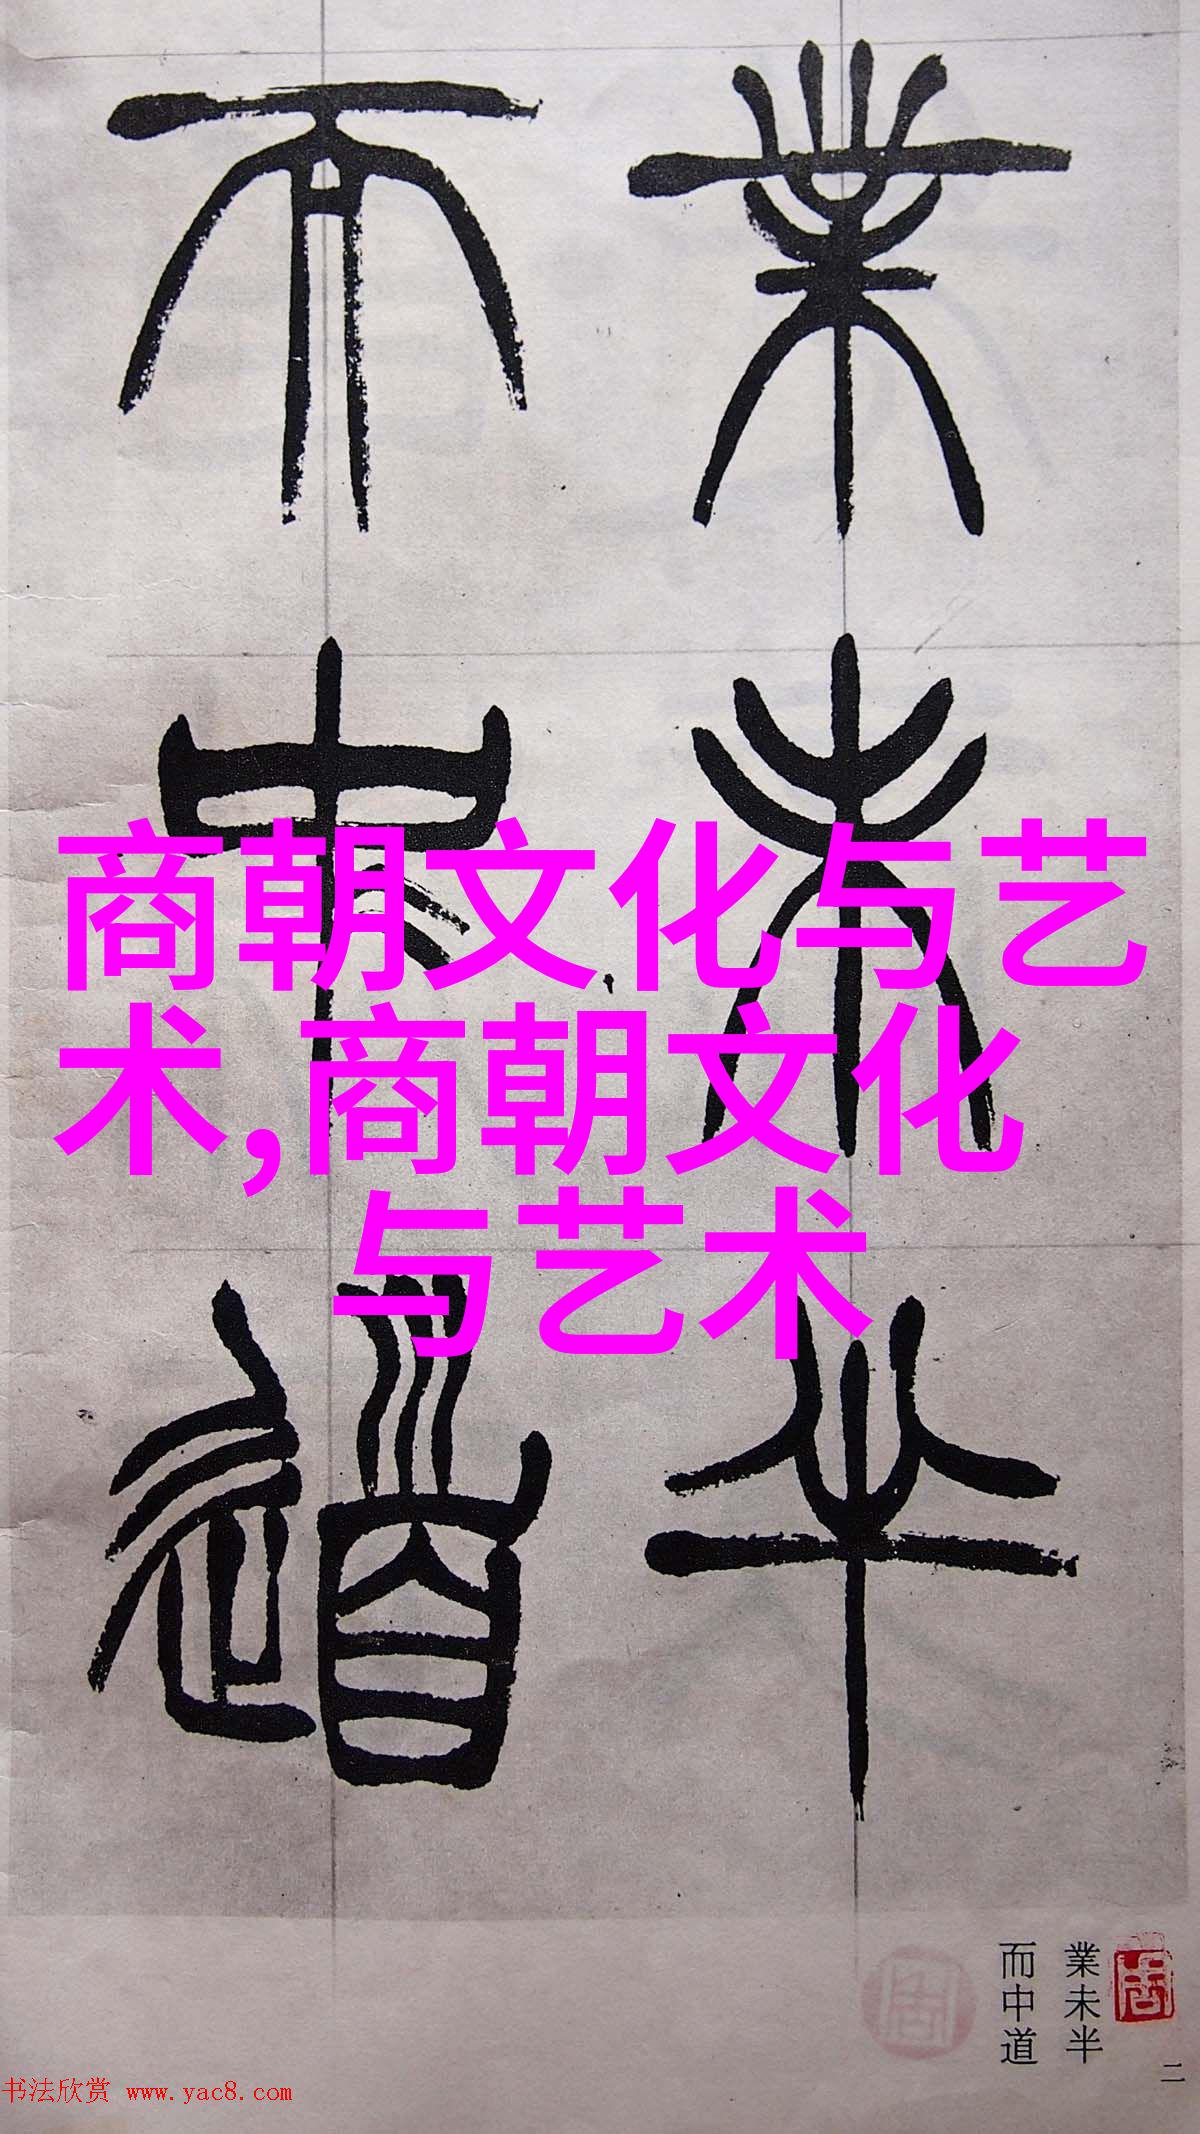 業未半
而中道
商朝文化与艺
术,商朝文化
与艺术
業未半
而中道
二
书法欣赏 www.yac8.com